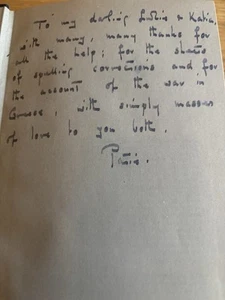 To my darling & Katia,
with many, many thanks for
all the help; for the sheets
of spelling corrections and for
the account of the war in
Greece, with simply masses
of love to you both.